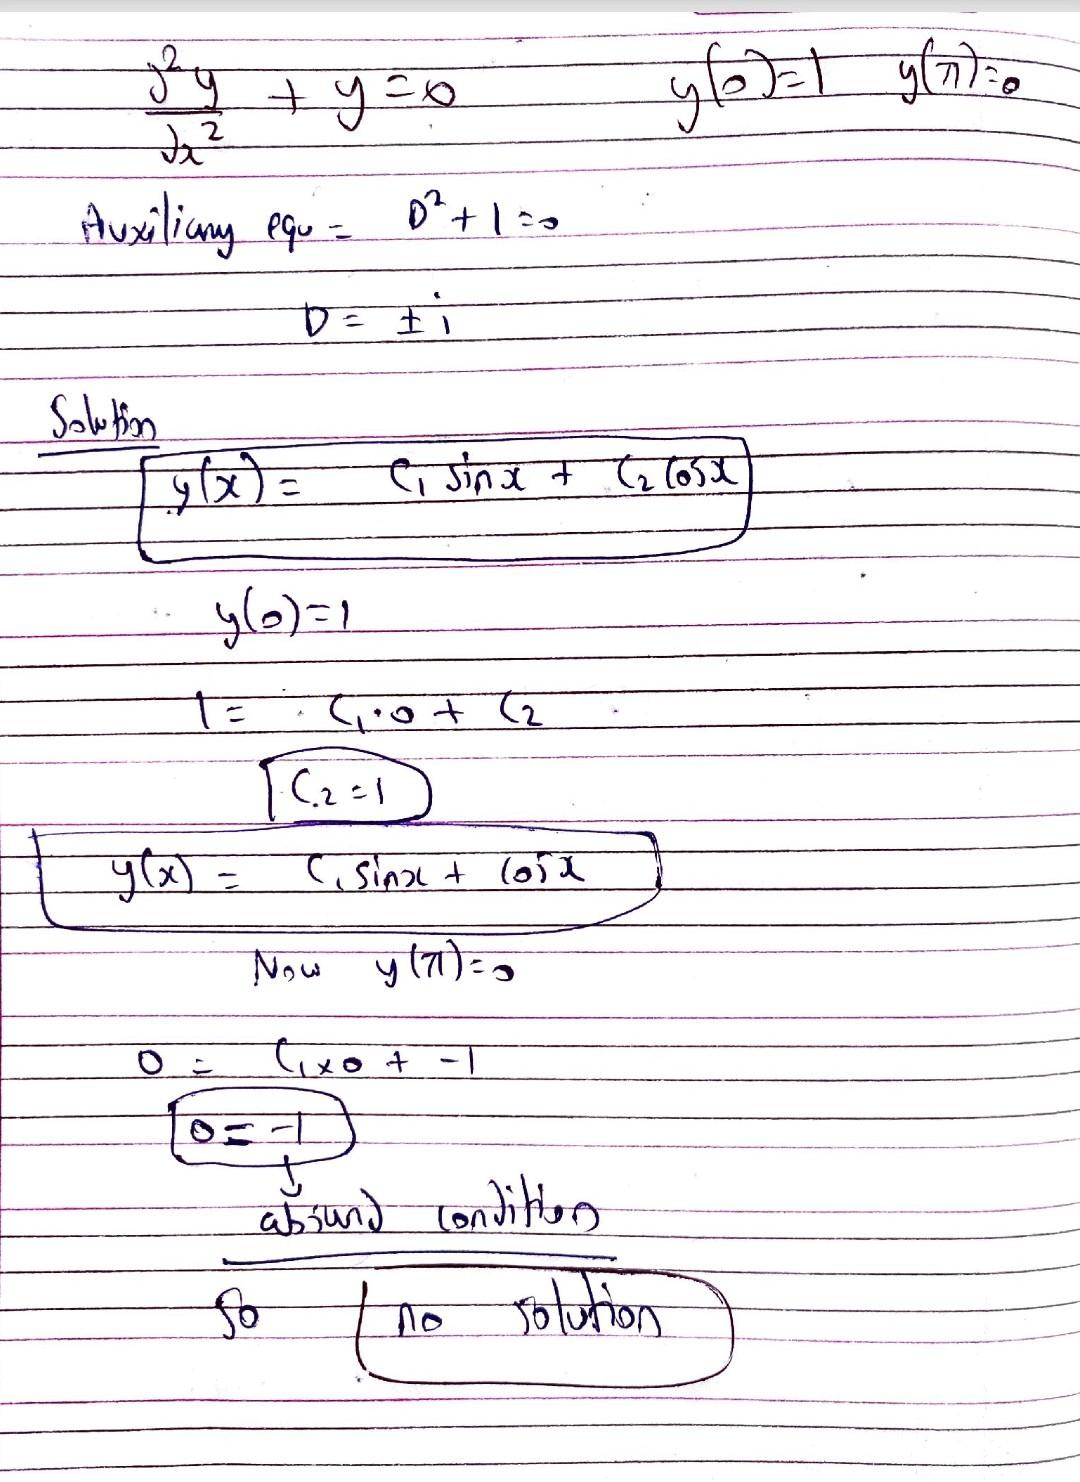 d²y/dx² + y = 0 y(0)=1 y(π)=0
Auxiliary equ = D² + 1 = 0
D = ± i
Solution
y(x) = C₁ sinx + C₂ cosx
y(0)=1
1 = C₁·0 + C₂
C₂ = 1
y(x) = C₁ sinx + cosx
Now y(π)=0
0 = C₁×0 + -1
0 = -1
↓
absurd condition
so no solution